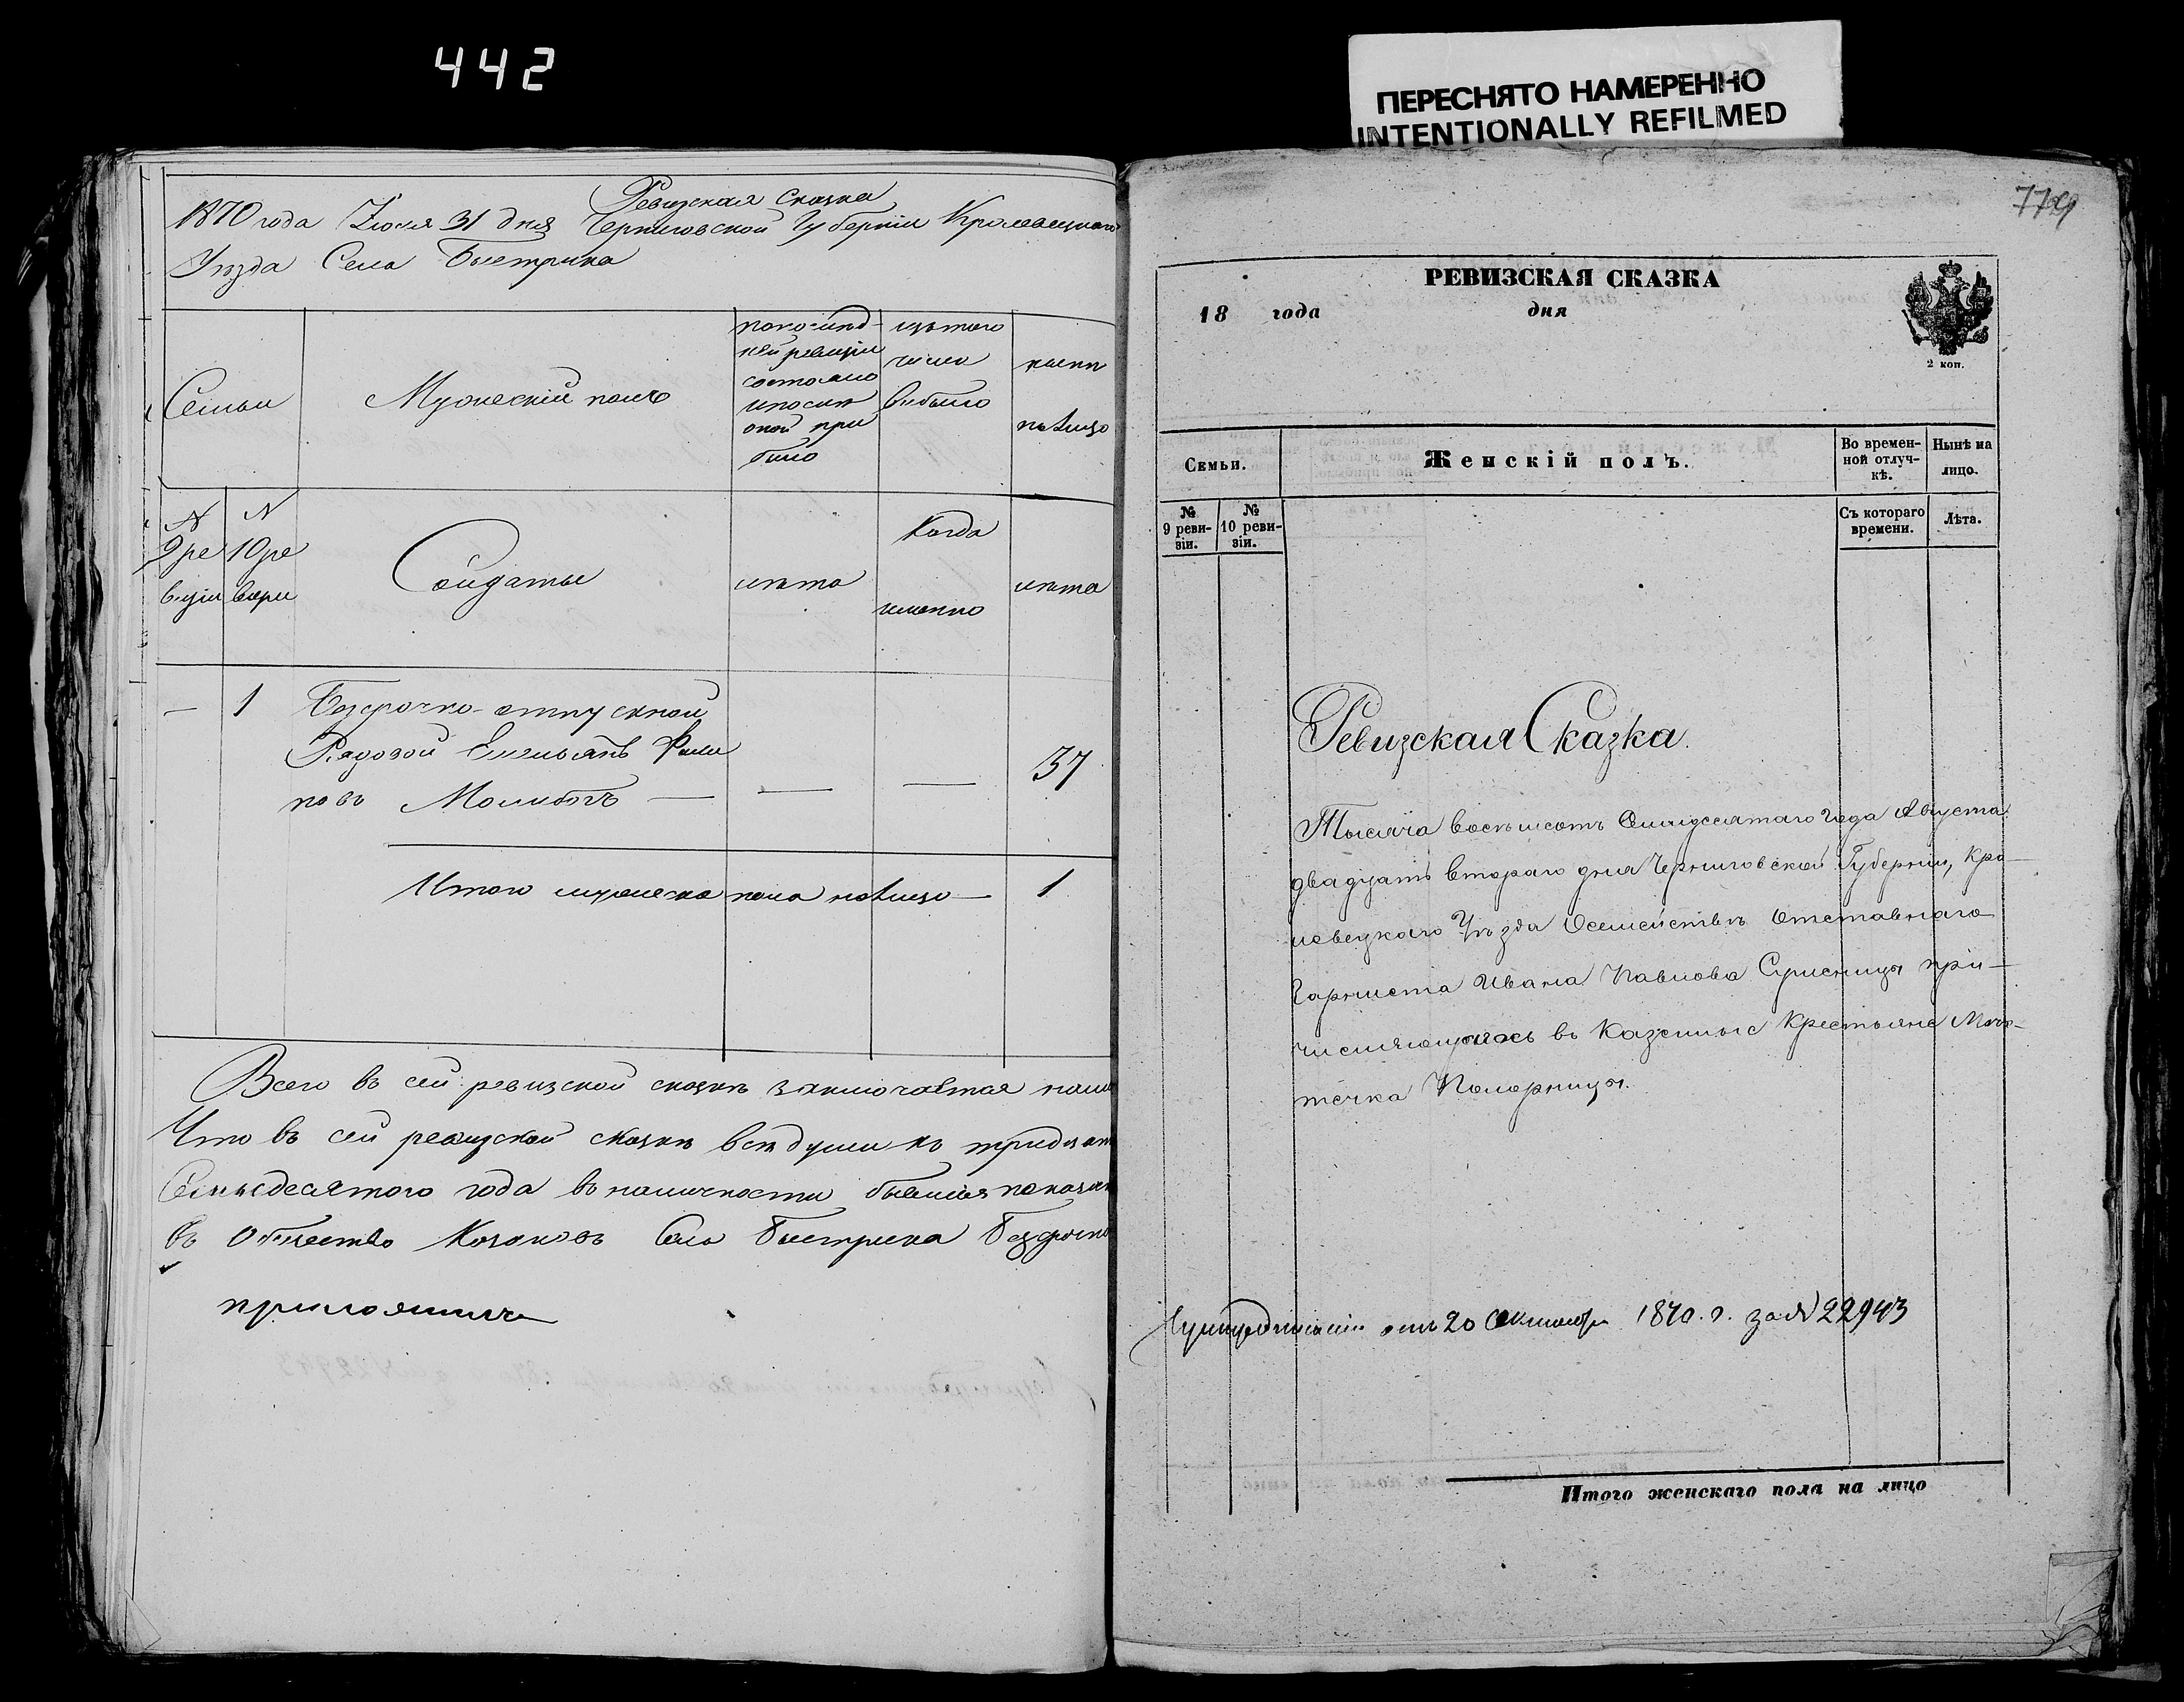 442
ПЕРЕСНЯТО НАМЕРЕННО
INTENTIONALLY REFILMED
Ревизская Сказка
1870 года Июля 31 дня Черниговской Губерніи Кролевецкаго
Уѣзда Села Быстрика
Семьи
Мужескій полъ
по послѣд-
ней ревизіи
состояло
и послѣ
оной при
было
изъ того
числа
выбыло
нынѣ
на лицо
N
9 ре
визіи
N
10 ре
визіи
Солдаты
лѣта
Когда
именно
лѣта
— 1 Безсрочно-отпускной
Рядовой Емельянъ Фили
повъ Молибогъ — — — 37
Итого мужеска пола на лицо — 1
Всего въ сей ревизской сказкѣ заключается
Что въ сей ревизской сказкѣ всѣ души къ тридцат
Семьсдесятого года въ наличности бывшія показан
въ Общество Козаковъ Села Быстрика
приложилъ
779
РЕВИЗСКАЯ СКАЗКА
18 года дня
2 коп.
Семьи.
Женскій полъ.
Во времен-
ной отлуч-
кѣ.
Нынѣ на
лицо.
№
9 реви-
зіи.
№
10 реви-
зіи.
Съ котораго
времени.
Лѣта.
Ревизская Сказка.
Тысяча восемьсотъ Семидесятаго года Августа
двадцать втораго дня Черниговской Губерніи, Кро-
левецкаго Уѣзда О семействѣ Отставнаго
Горниста Ивана Павлова при-
числяющагося въ Казенные Крестьяне Мѣс-
течка Понорницы.
отъ 20 Октября 1870. г. за № 22943
Итого женскаго пола на лицо